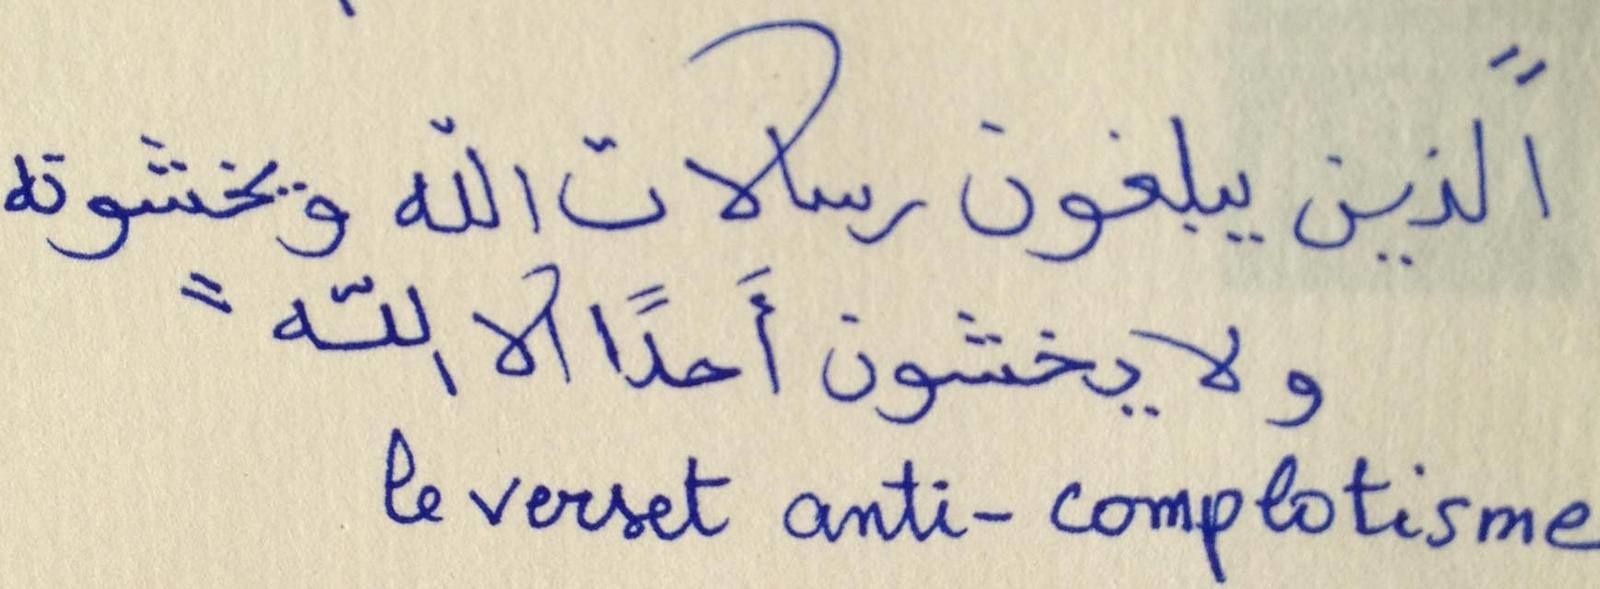 "الذين يبلغون رسالات اللّه ويخشونه
ولا يخشون أَحدًا الا اللّه"
le verset anti-complotisme